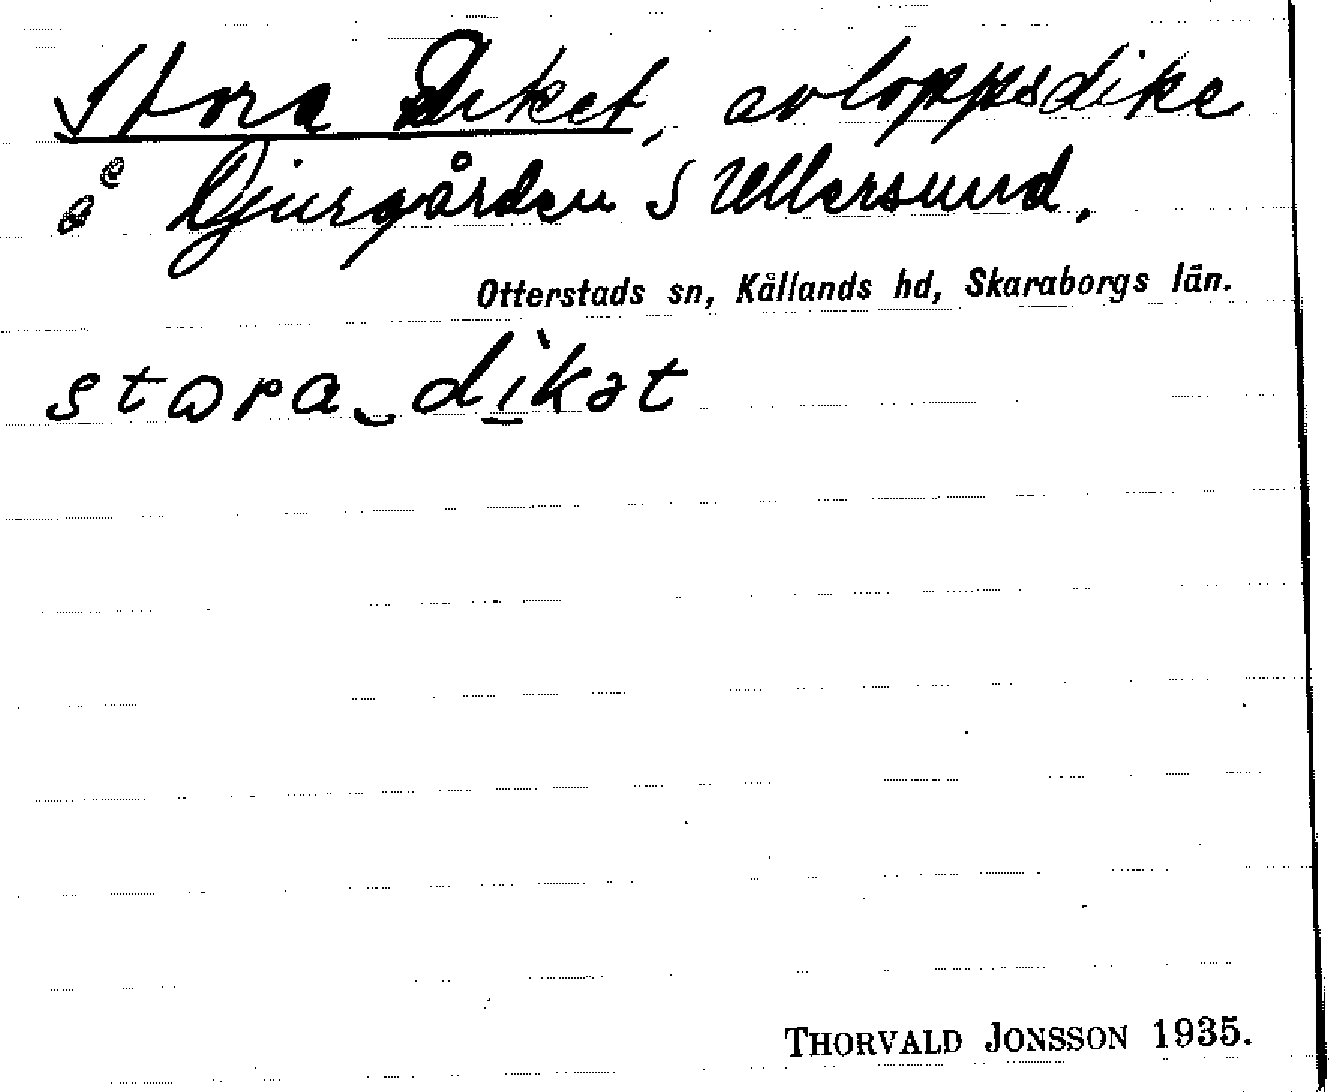 Stora Diket, avloppsdike
å Djurgården S Ullersund.
Otterstads sn, Kållands hd, Skaraborgs län.
stωra‿di̠kət
THORVALD JONSSON 1935.